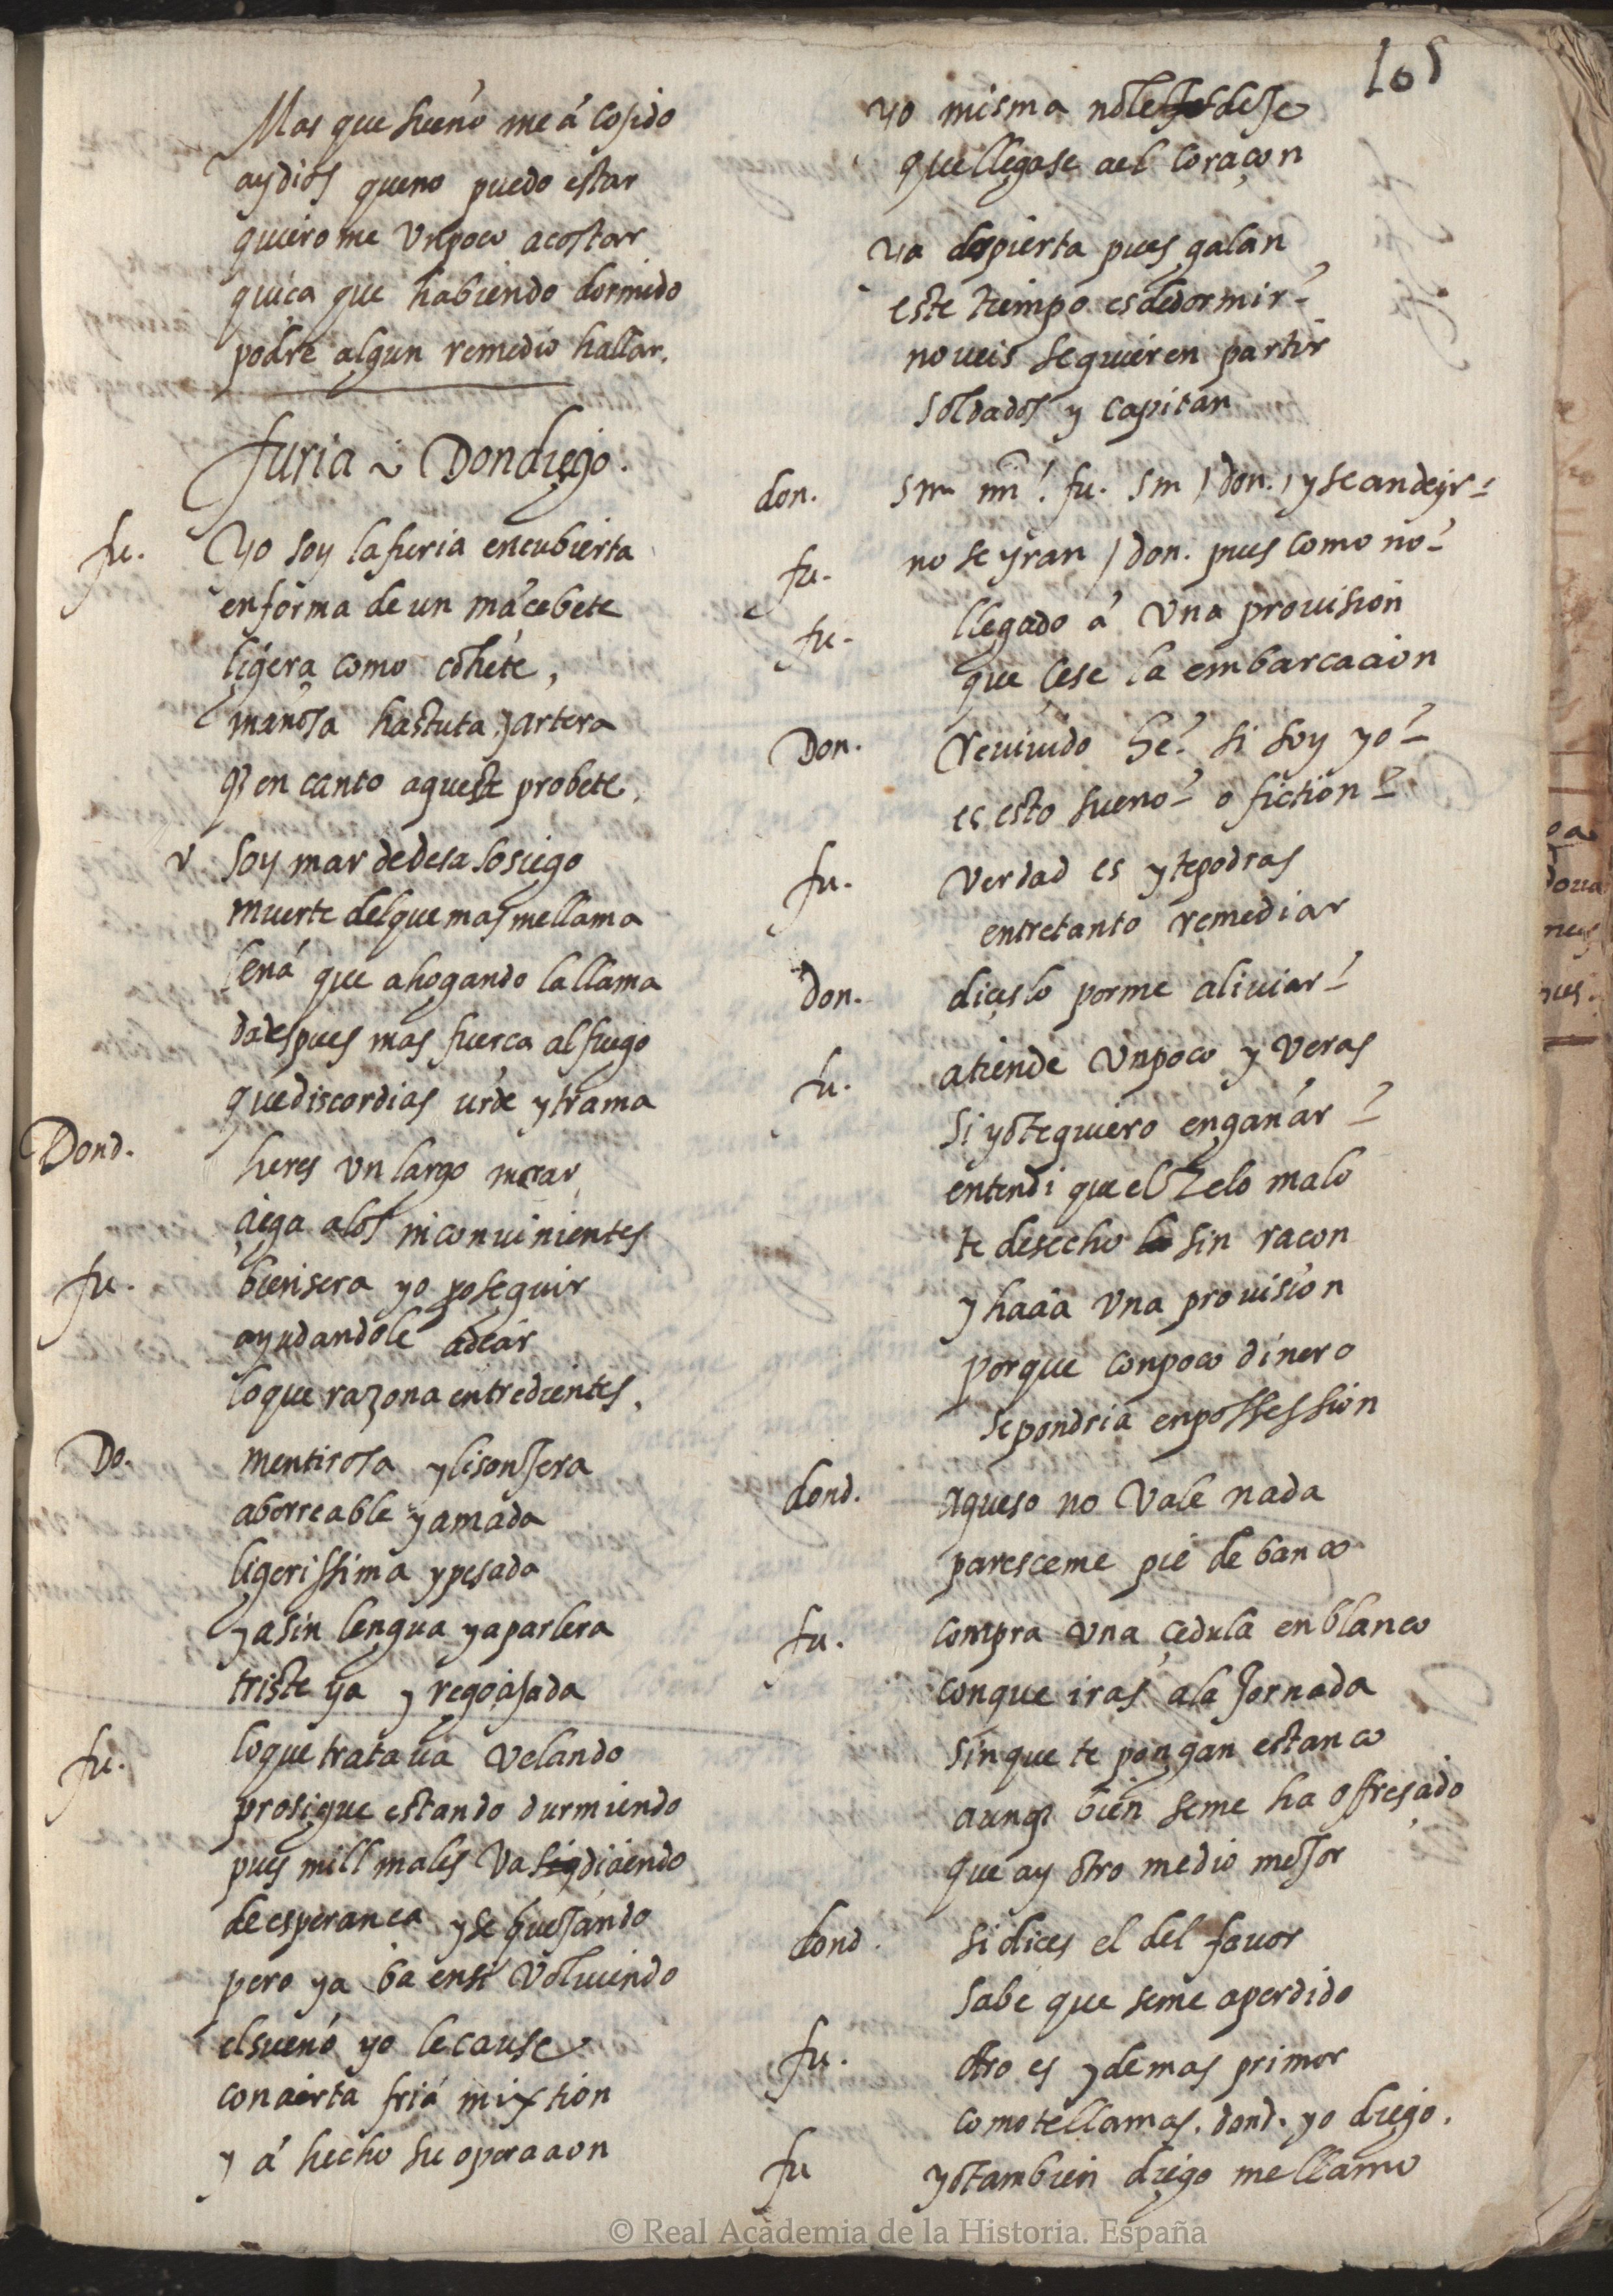 105
Mas que sueño me á cojido
ay dios que no puedo estar
quiero me Un poco acostar
quiça que habiendo dormido
podre algun remedio hallar.
furia i Don diego.
fu. Yo soy la furia encubierta
en forma de un mācebete
ligera como cohete,
mañosa hastuta y artera
q̃ en canto aqueste probete.
v soy mar de desa sosiego
muerte del que mas me llama
leña que ahogando la llama
da despues mas fuerça al fuego
que discordias urde y trama
Dond. heres Un largo mirar
çiega a los inconuinientes
fu. bien sera yo proseguir
ayudandole adeçir
lo que razona entre dientes.
Do. mentirosa y lisonjera
aborreçible y amada
ligerissima y pesada
ya sin lengua ya parlera
triste ya y regoçijada
fu. lo que trataua Velando
prosigue estando durmiendo
pues mill males Va diçiendo
de esperança y se quejando
pero ya ba en si Voluiendo
el sueño yo le cause
con çierta fria mixtion
y á hecho su operaçion
yo misma no le deje
que llegase a el coraçon
ya despierta pues galan
este tiempo es de dormir?
no ueis se quieren partir
soldados y capitan
don. Sm̃ mi! fu. Sm / don. / y se an de yr?
fu. no se yran / don. pues como no?
fu. llegado á Una prouision
que çese la embarcaçion
Don. reuiuido he? si soy yo?
es esto sueño? o fiction?
fu. Verdad es y te podras
entretanto remediar
don. diçes lo por me aliuiar?
fu. atiende Un poco y Veras
si yo te quiero engañar?
entendi que el Zelo malo
te desecho sin raçon
y haçia Una prouision
porque con poco dinero
se pondria en possession
dond. Aqueso no Vale nada
paresceme pie de banco
fu. Compra Una çedula en blanco
con que iras a la Jornada
sin que te pongan estanco
aunq̃ bien se me ha offreşçido
que ay otro medio mejor
dond. si diçes el del fauor
sabe que se me a perdido
fu. Otro es y de mas primor
como te llamas. dond. yo diego.
fu yo tambien diego me llamo
© Real Academia de la Historia. España